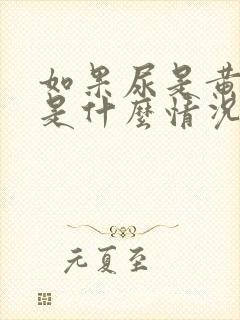 如果尿是黄
是什麼情況
元夏至